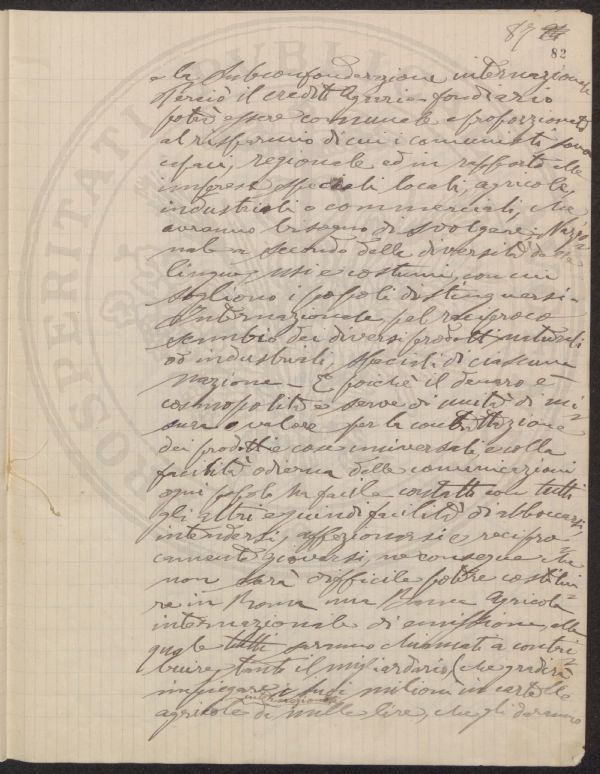 87
82
e la Subconfonderazione internazionale
Perciò il credito Agrario-fondiario
potrà essere comunale e proporzionato
al risparmio di cui i comunisti sono
capaci, regionale ed in rapporto alle
imprese speciali locali, agricole,
industriali o commerciali, che
avranno bisogno di svolgere; Nazio=
nale a secondo delle diversità della
lingua, usi e costumi, con cui
sogliono i popoli distinguersi -
Internazionale pel reciproco
scambio dei diversi prodotti naturali
od industriali, speciali di ciascuna
nazione - E poichè il denaro è
cosmopolita e serve di unità di mi=
sura o valore per la contrattazione
dei prodotti e cose universali, e colla
facilità odierna delle comunicazioni
ogni popolo ha facile contatto con tutti
gli altri e quindi facilità di abboccarsi,
intendersi, affezionarsi e recipro=
camente giovarsi, ne consegue che
non sarà difficile potere costitui=
re in Roma una Banca Agricola
internazionale di emissione, alla
quale tutti saranno chiamati a contri=
buire, tanto il migliardario (che gradirà
impiegare i suoi milioni in cartelle
internazionali
agricole di mille lire, che gli daranno